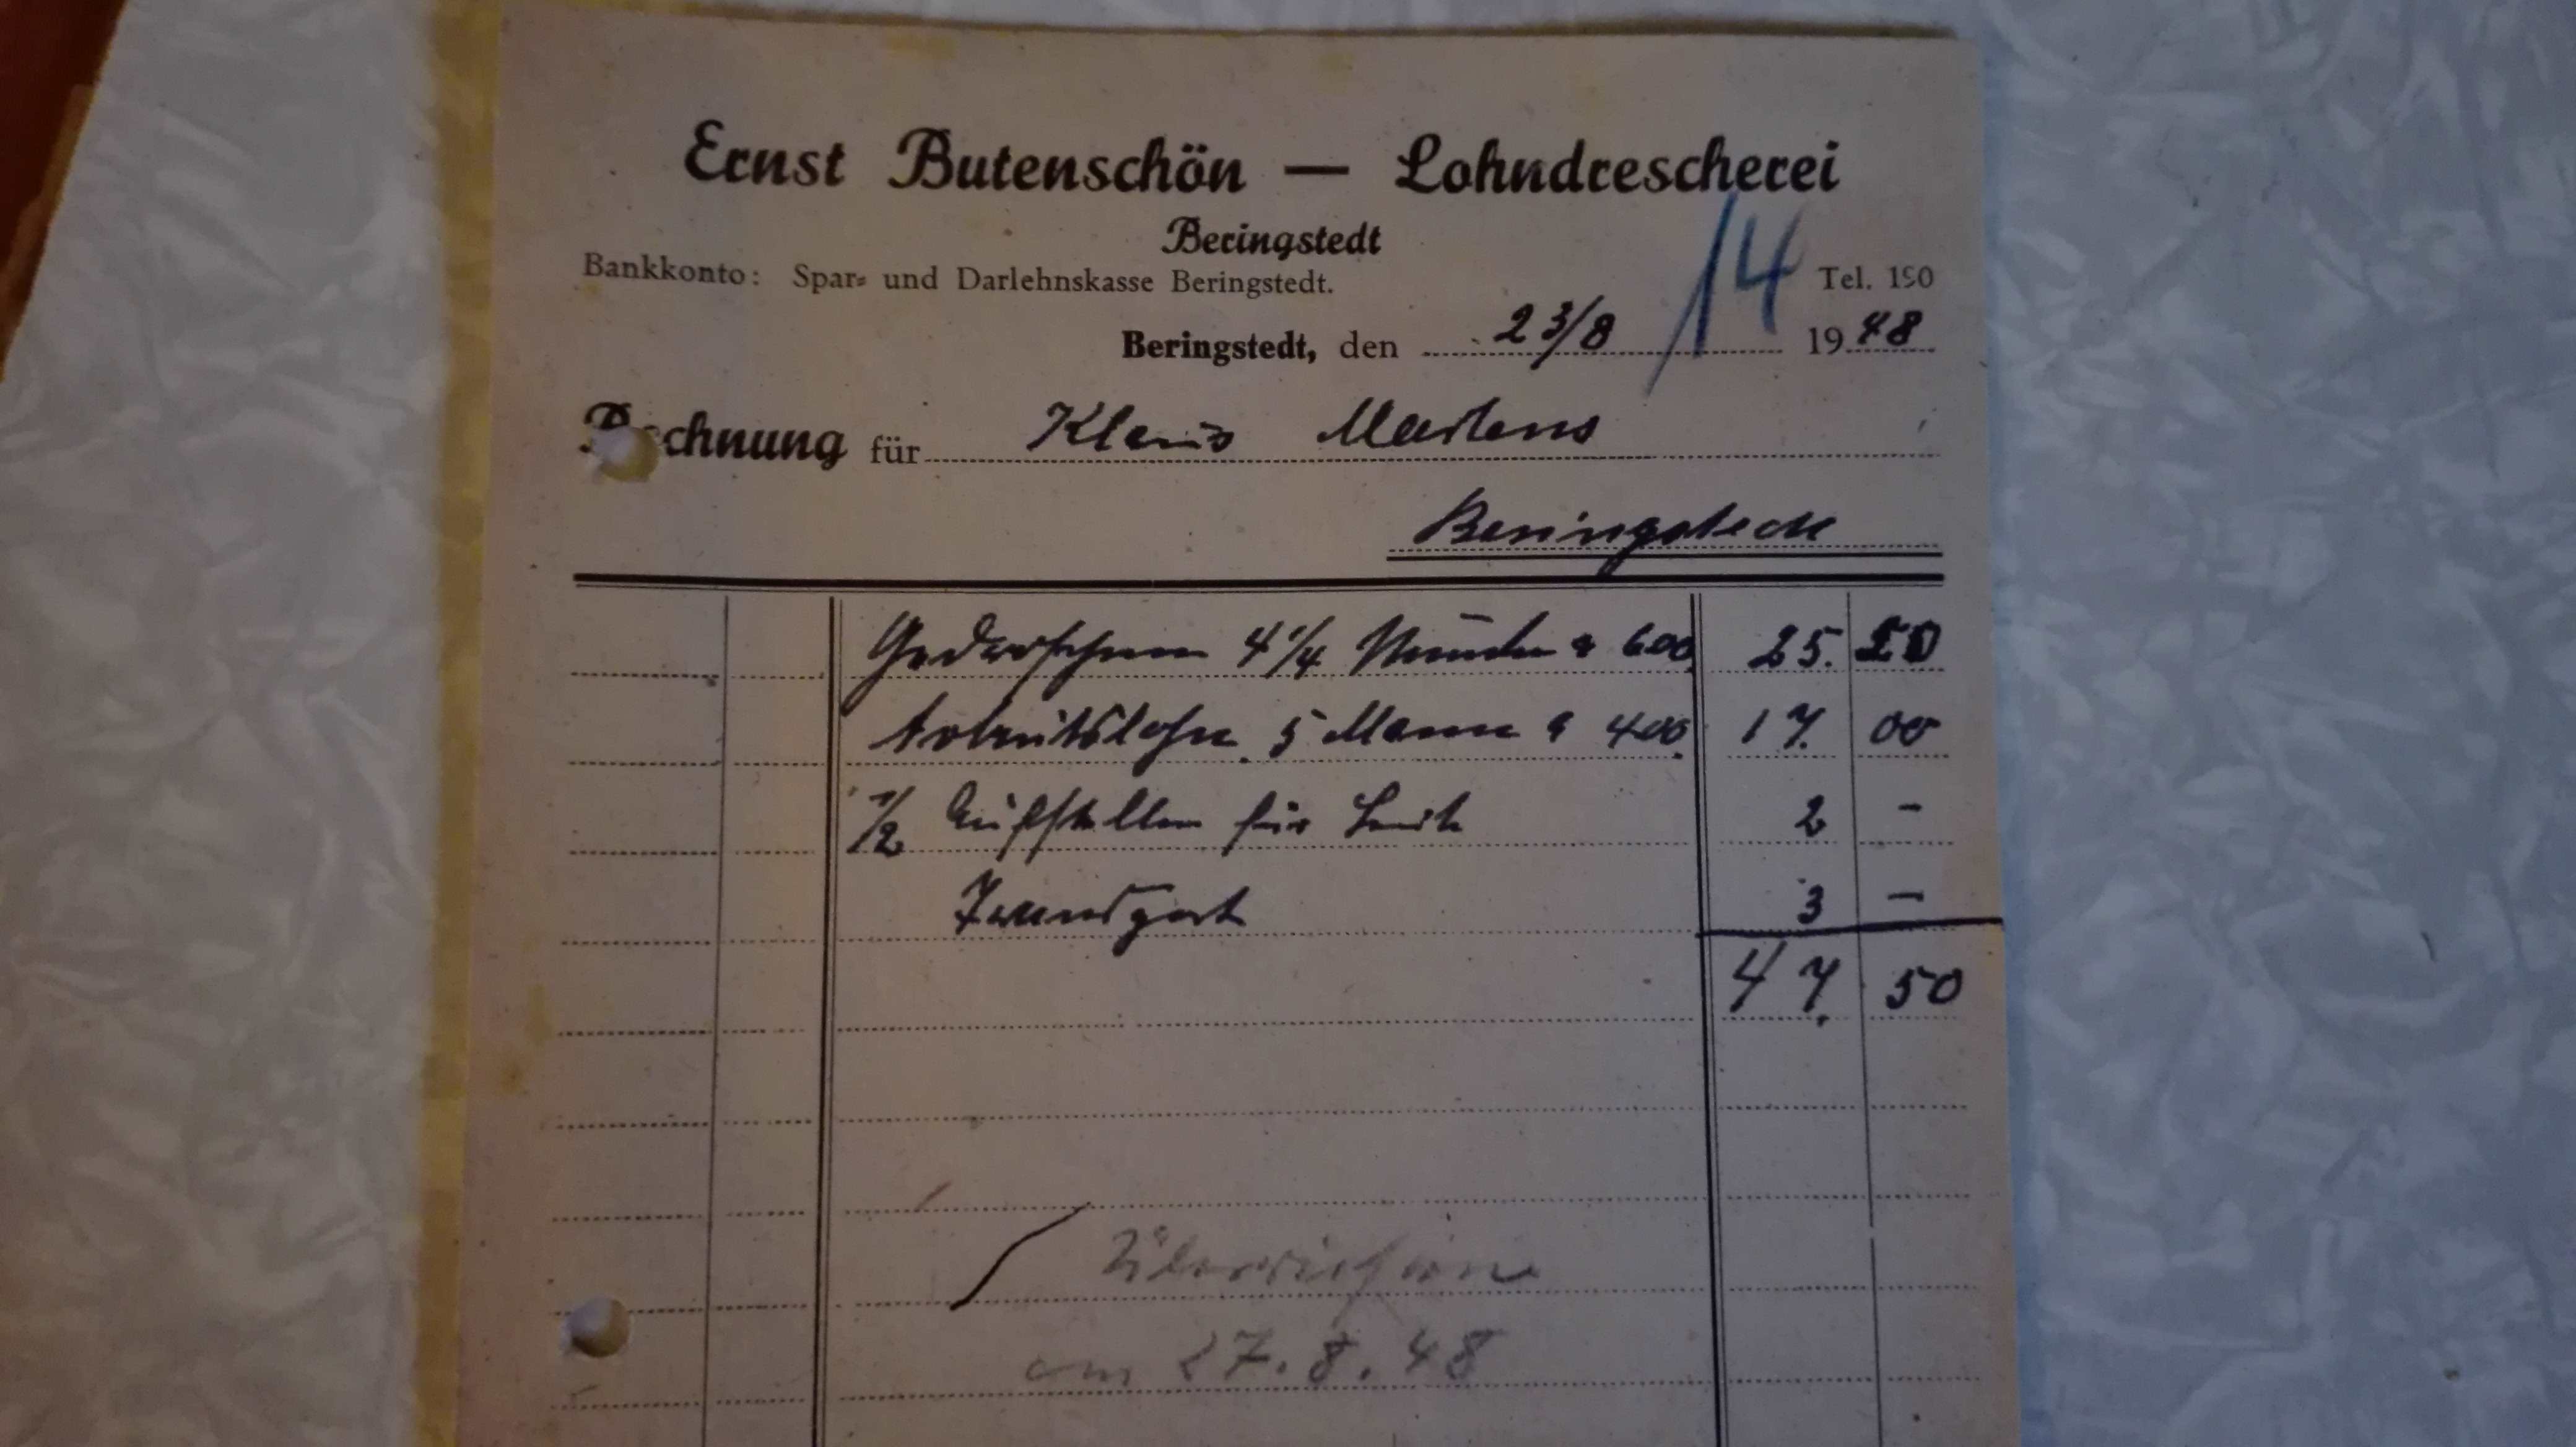 Ernst Butenschön — Lohndrescherei
Beringstedt
Bankkonto: Spar- und Darlehnskasse Beringstedt.
14
Tel. 190
Beringstedt, den 23/8 1948
Rechnung für Klaus Martens
Beringstedt
Gedroschen 4 1/4 Stunden a 600 25. 50
Arbeitslohn 5 Mann a 400 17. 00
1/2 Aufstellen für Leute 2 –
3 –
47. 50
Überwiesen
am 27.8.48